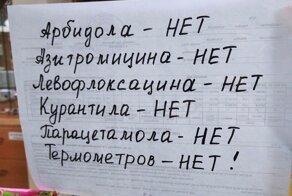 Арбидола - НЕТ
Азитромицина - НЕТ
Левофлоксацина - НЕТ
Курантила - НЕТ
Парацетамола - НЕТ
Термометров - НЕТ!